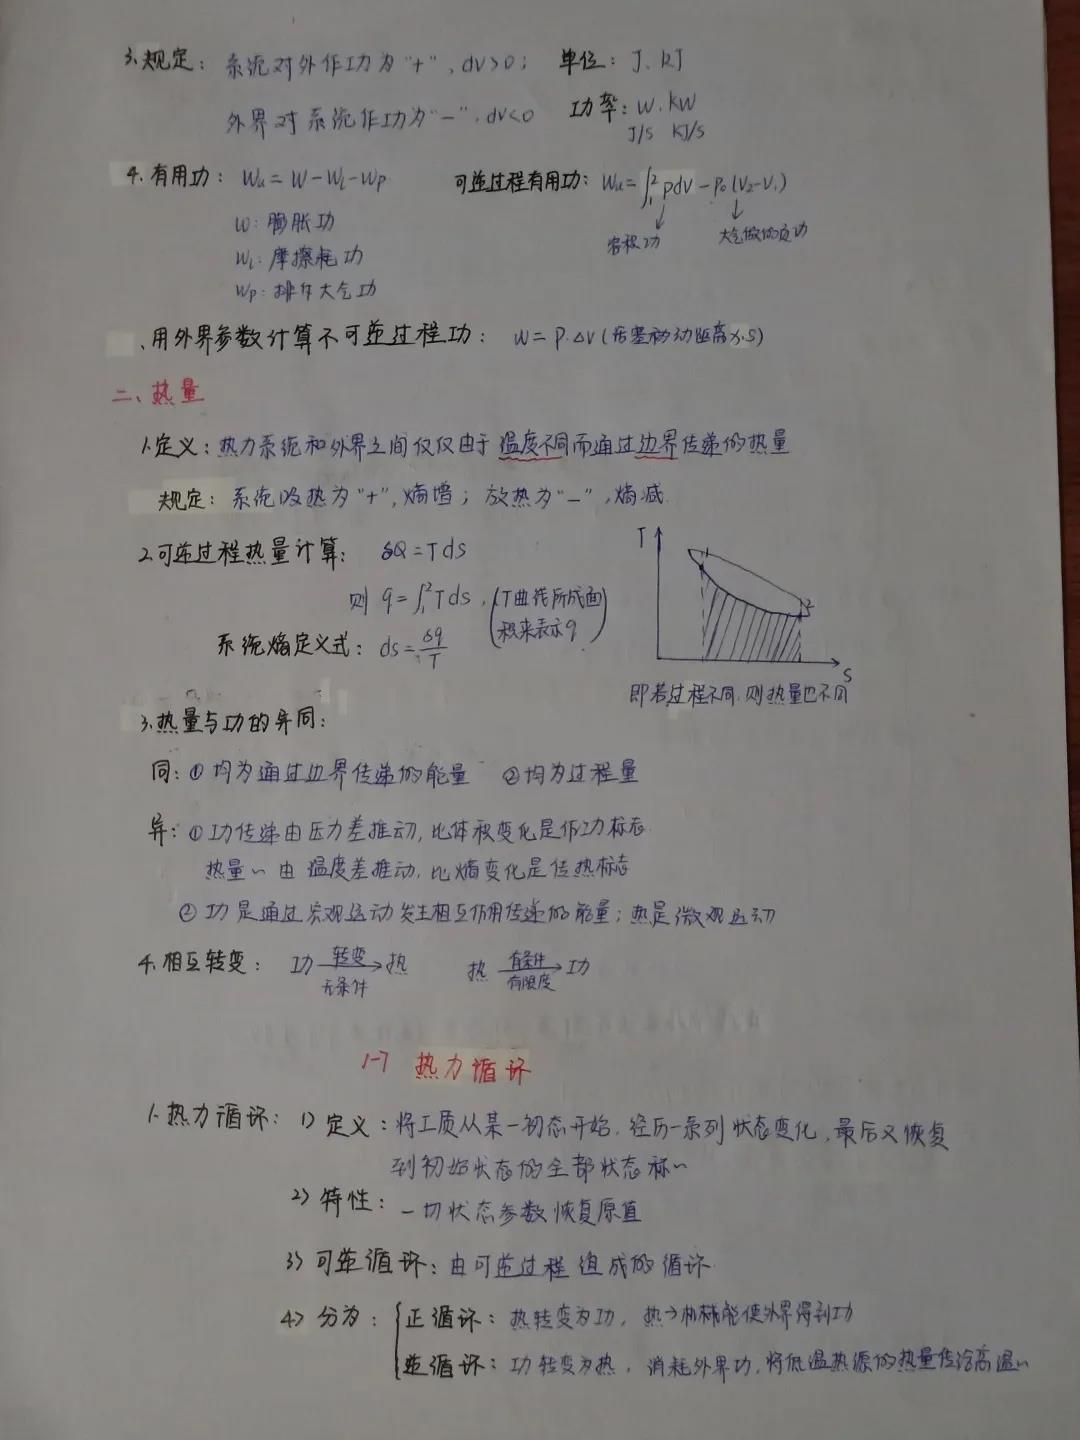 3.规定：系统对外作功为"+"，dv>0； 单位：J、kJ
外界对系统作功为"-"，dv<0 功率：W、kW
J/s kJ/s
4.有用功：Wu=W-Wl-Wp 可逆过程有用功：Wu=∫₁²pdv-p₀(V₂-V₁)
W：膨胀功 容积功 大气做的负功
Wl：摩擦耗功
Wp：排斥大气功
、用外界参数计算不可逆过程功： W=P·ΔV(活塞移动距离×S)
二、热量
1.定义：热力系统和外界之间仅仅由于温度不同而通过边界传递的热量
规定：系统吸热为"+"，熵增；放热为"-"，熵减.
2.可逆过程热量计算： δQ=Tds
则 q=∫₁²Tds，(T曲线所成面积来表示q)
系统熵定义式：ds=δq/T
T
1
2
S
即若过程不同，则热量也不同
3.热量与功的异同：
同：①均为通过边界传递的能量 ②均为过程量
异：①功传递由压力差推动，比体积变化是作功标志.
热量~由 温度差推动，比熵变化是传热标志
②功是通过宏观运动发生相互作用传递的能量；热是微观运动
4.相互转变： 功 转变→ 热 热 有条件→ 功
无条件 有限度
1-7 热力循环
1.热力循环：1) 定义：将工质从某一初态开始，经历一系列状态变化，最后又恢复
到初始状态的全部状态称~
2) 特性：一切状态参数恢复原值
3) 可逆循环：由可逆过程组成的循环
4) 分为：{正循环：热转变为功，热→机械能使外界得到功
逆循环：功转变为热，消耗外界功，将低温热源的热量传给高温~